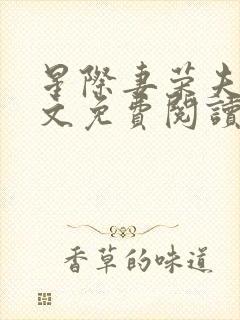 星際妻榮夫
文免費閱讀
香草的味道